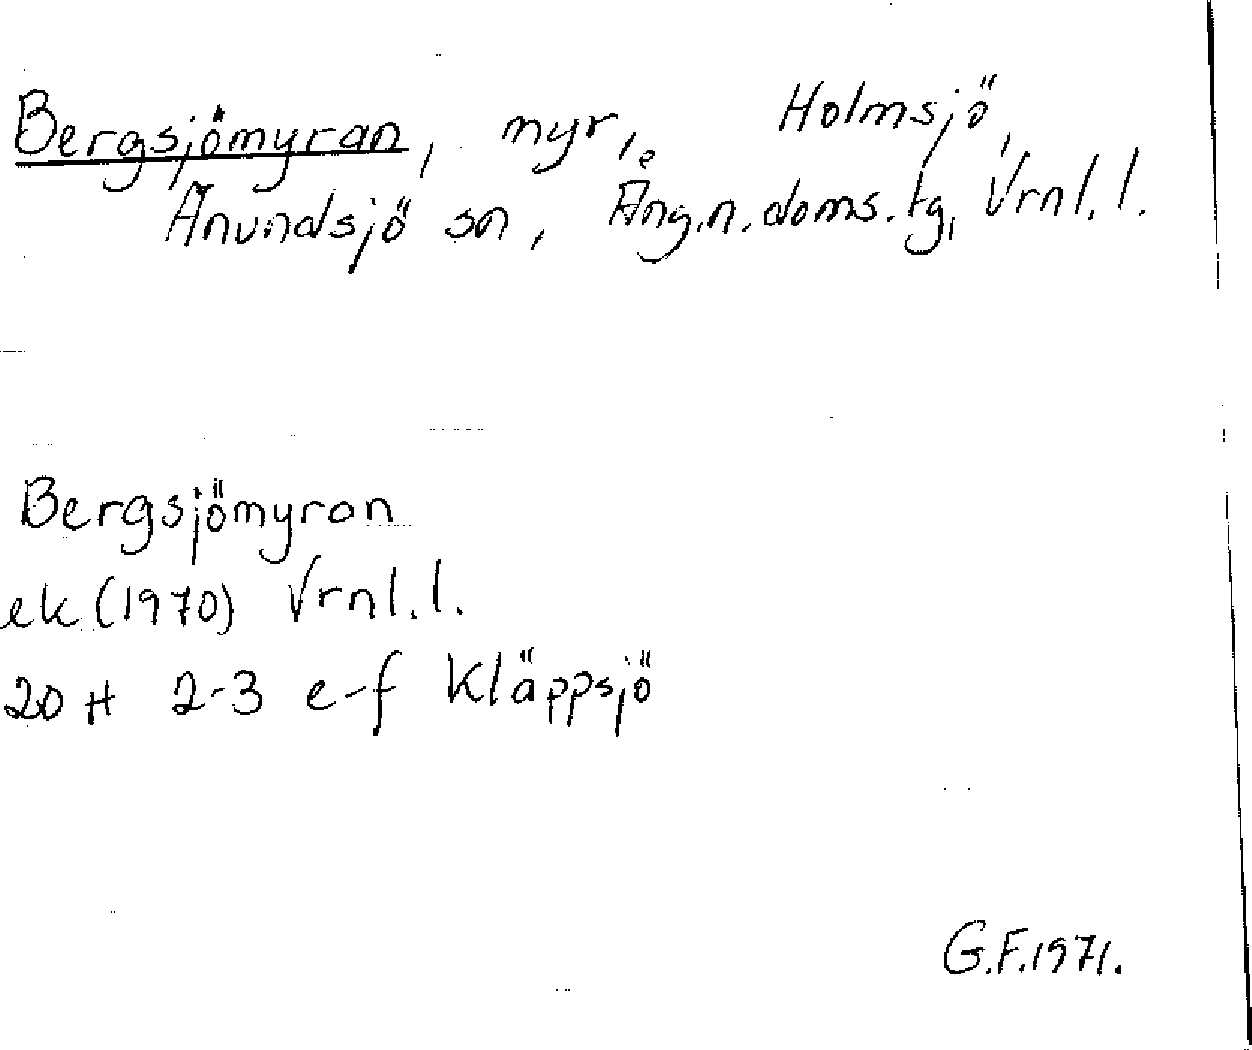 Bergsjömyran, myr, Holmsjö,
Anundsjö sn, Ång.n.doms.tg, Vrnl.l.
Bergsjömyron
ek (1970) Vrnl.l.
20 H 2-3 e-f Kläppsjö
G.F.1971.